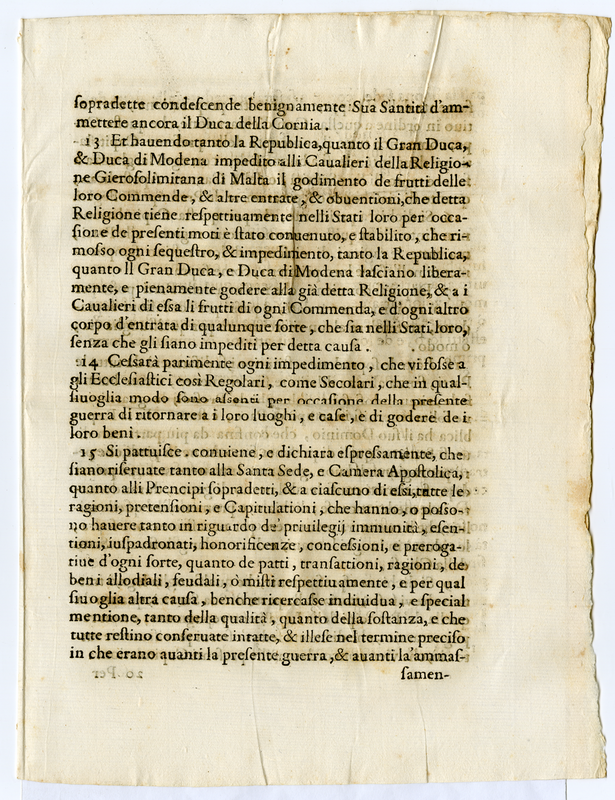 sopradette condescende benignamente Sua Santità d'am-
mettere ancora il Duca della Cornia.
13 Et hauendo tanto la Republica, quanto il Gran Duca,
& Duca di Modena impedito alli Caualieri della Religio-
ne Gierosolimitana di Malta il godimento de frutti delle
loro Commende, & altre entrate, & obuentioni, che detta
Religione tiene respettiuamente nelli Stati loro per occa-
sione de presenti moti è stato conuenuto, e stabilito, che ri-
mosso ogni sequestro, & impedimento, tanto la Republica,
quanto Il Gran Duca, e Duca di Modena lasciano libera-
mente, e pienamente godere alla già detta Religione, & a i
Caualieri di essa li frutti di ogni Commenda, e d'ogni altro
corpo d'entrata di qualunque sorte, che sia nelli Stati loro,
senza che gli siano impediti per detta causa.
14 Cessarà parimente ogni impedimento, che vi fosse a
gli Ecclesiastici così Regolari, come Secolari, che in qual-
siuoglia modo sono assenti per occasione della presente
guerra di ritornare a i loro luoghi, e case, e di godere de i
loro beni.
15 Si pattuisce, conuiene, e dichiara espressamente, che
siano riseruate tanto alla Santa Sede, e Camera Apostolica,
quanto alli Prencipi sopradetti, & a ciascuno di essi, tutte le
ragioni, pretensioni, e Capitulationi, che hanno, o posso-
no hauere tanto in riguardo de' priuilegij immunità, esen-
tioni, iuspadronati, honorificenze, concessioni, e preroga-
tiue d'ogni sorte, quanto de patti, transattioni, ragioni, de
beni allodiali, feudali, ò misti respettiuamente, e per qual
siuoglia altra causa, benche ricercasse indiuidua, e special
mentione, tanto della qualità, quanto della sostanza, e che
tutte restino conseruate intatte, & illese nel termine preciso
in che erano auanti la presente guerra, & auanti la' ammas-
samen-